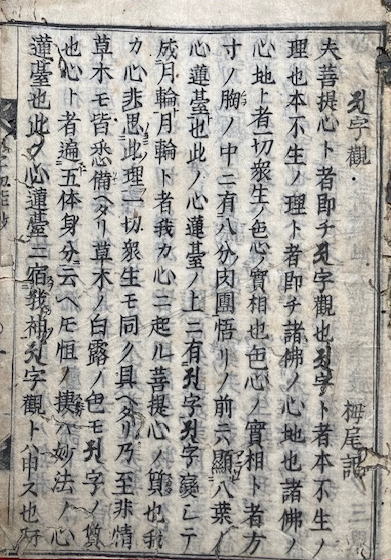 𑖀字觀 栂尾記
夫菩提心ト者即チ𑖀字觀也𑖀字ト者本不生ノ
理也本不生ノ理ト者即チ諸佛ノ心地也諸佛ノ
心地ト者一切衆生ノ色心ノ實相也色心ノ實相ト者方
寸ノ胸ノ中ニ有八分肉團悟リノ前ニハ顯八葉ノ
心蓮臺也此ノ心蓮臺ノ上ニ有𑖀字𑖀字變シテ
成月輪月輪ト者我カ心ニ起ル菩提心ノ質也我
カ心非思此理一切衆生モ同ク具ヘタリ乃至非情
草木モ皆悉備ヘタリ草木ノ白露ノ色モ𑖀字ノ質
也心ト者遍五体身分云ヘモ恒ノ捿ハ妙法ノ心
蓮臺也此ノ心蓮臺ニ宿我神𑖀字觀トハ申ス也